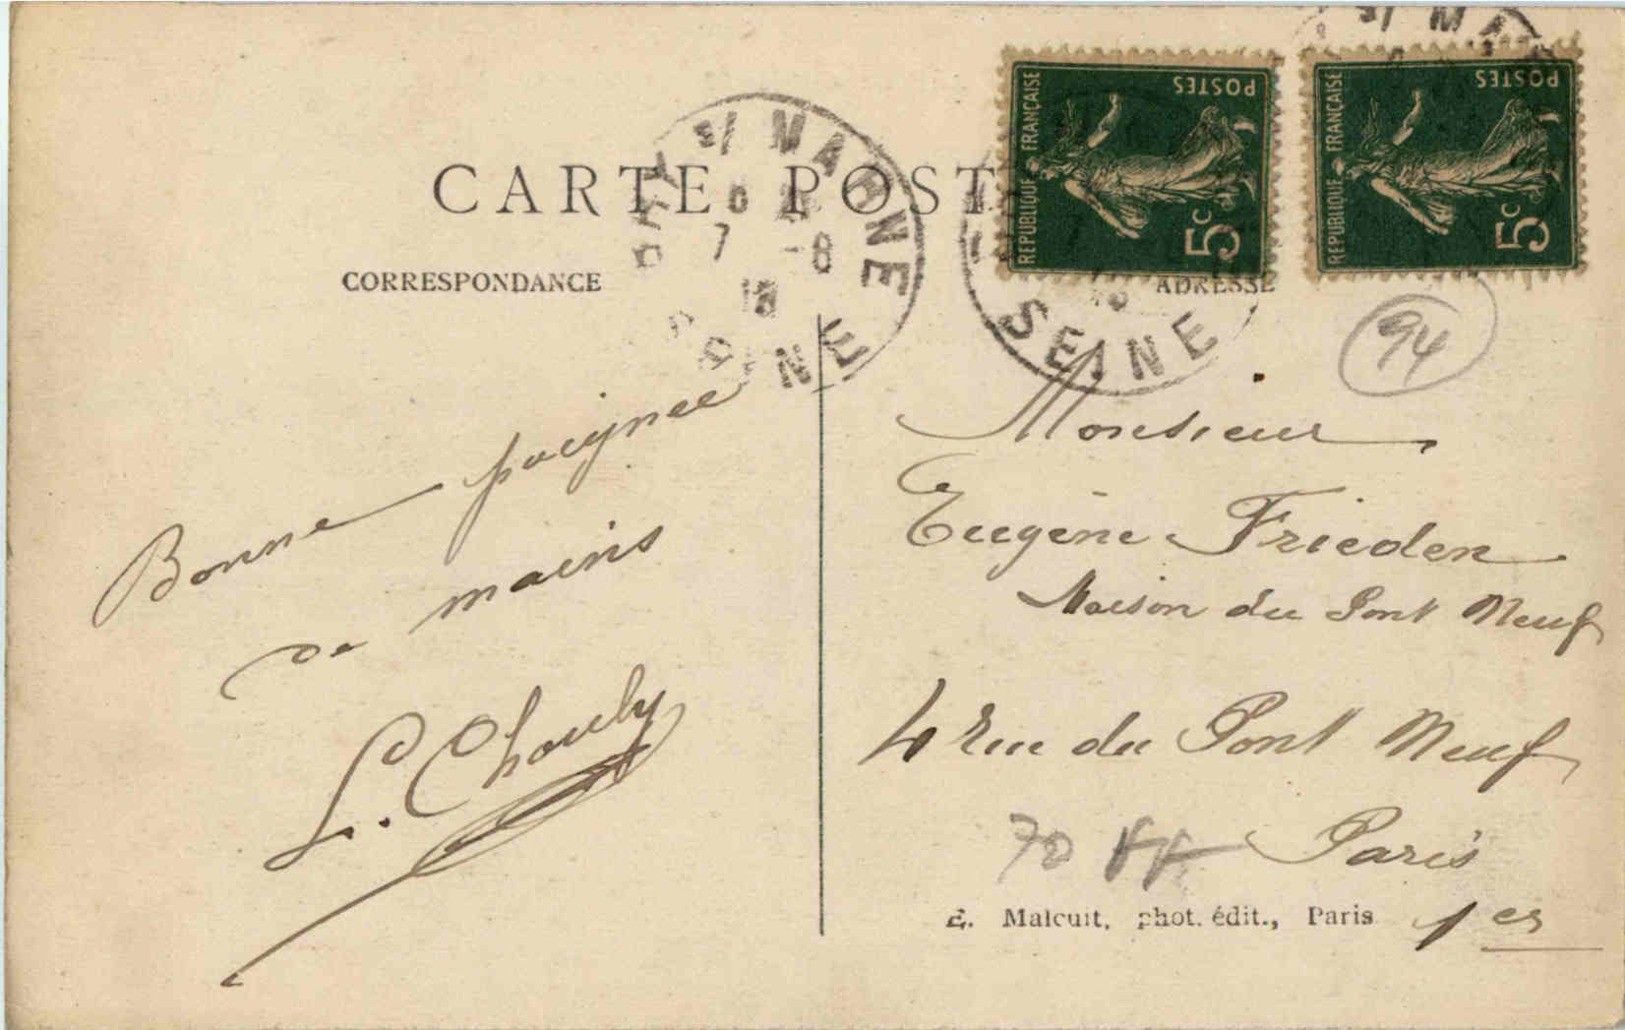 CARTE POST
CORRESPONDANCE
ADRESSE
REPUBLIQUE FRANÇAISE
POSTES
5c
REPUBLIQUE FRANÇAISE
POSTES
5c
S/ MARNE
7 -8
SEINE
94
Bonne poignee
de mains
L. Chouly
Monsieur
Eugène Frieden
Maison du Pont Neuf
4 Rue du Pont Neuf
Paris
1er
70 FF
E. Malcuit, phot. édit., Paris